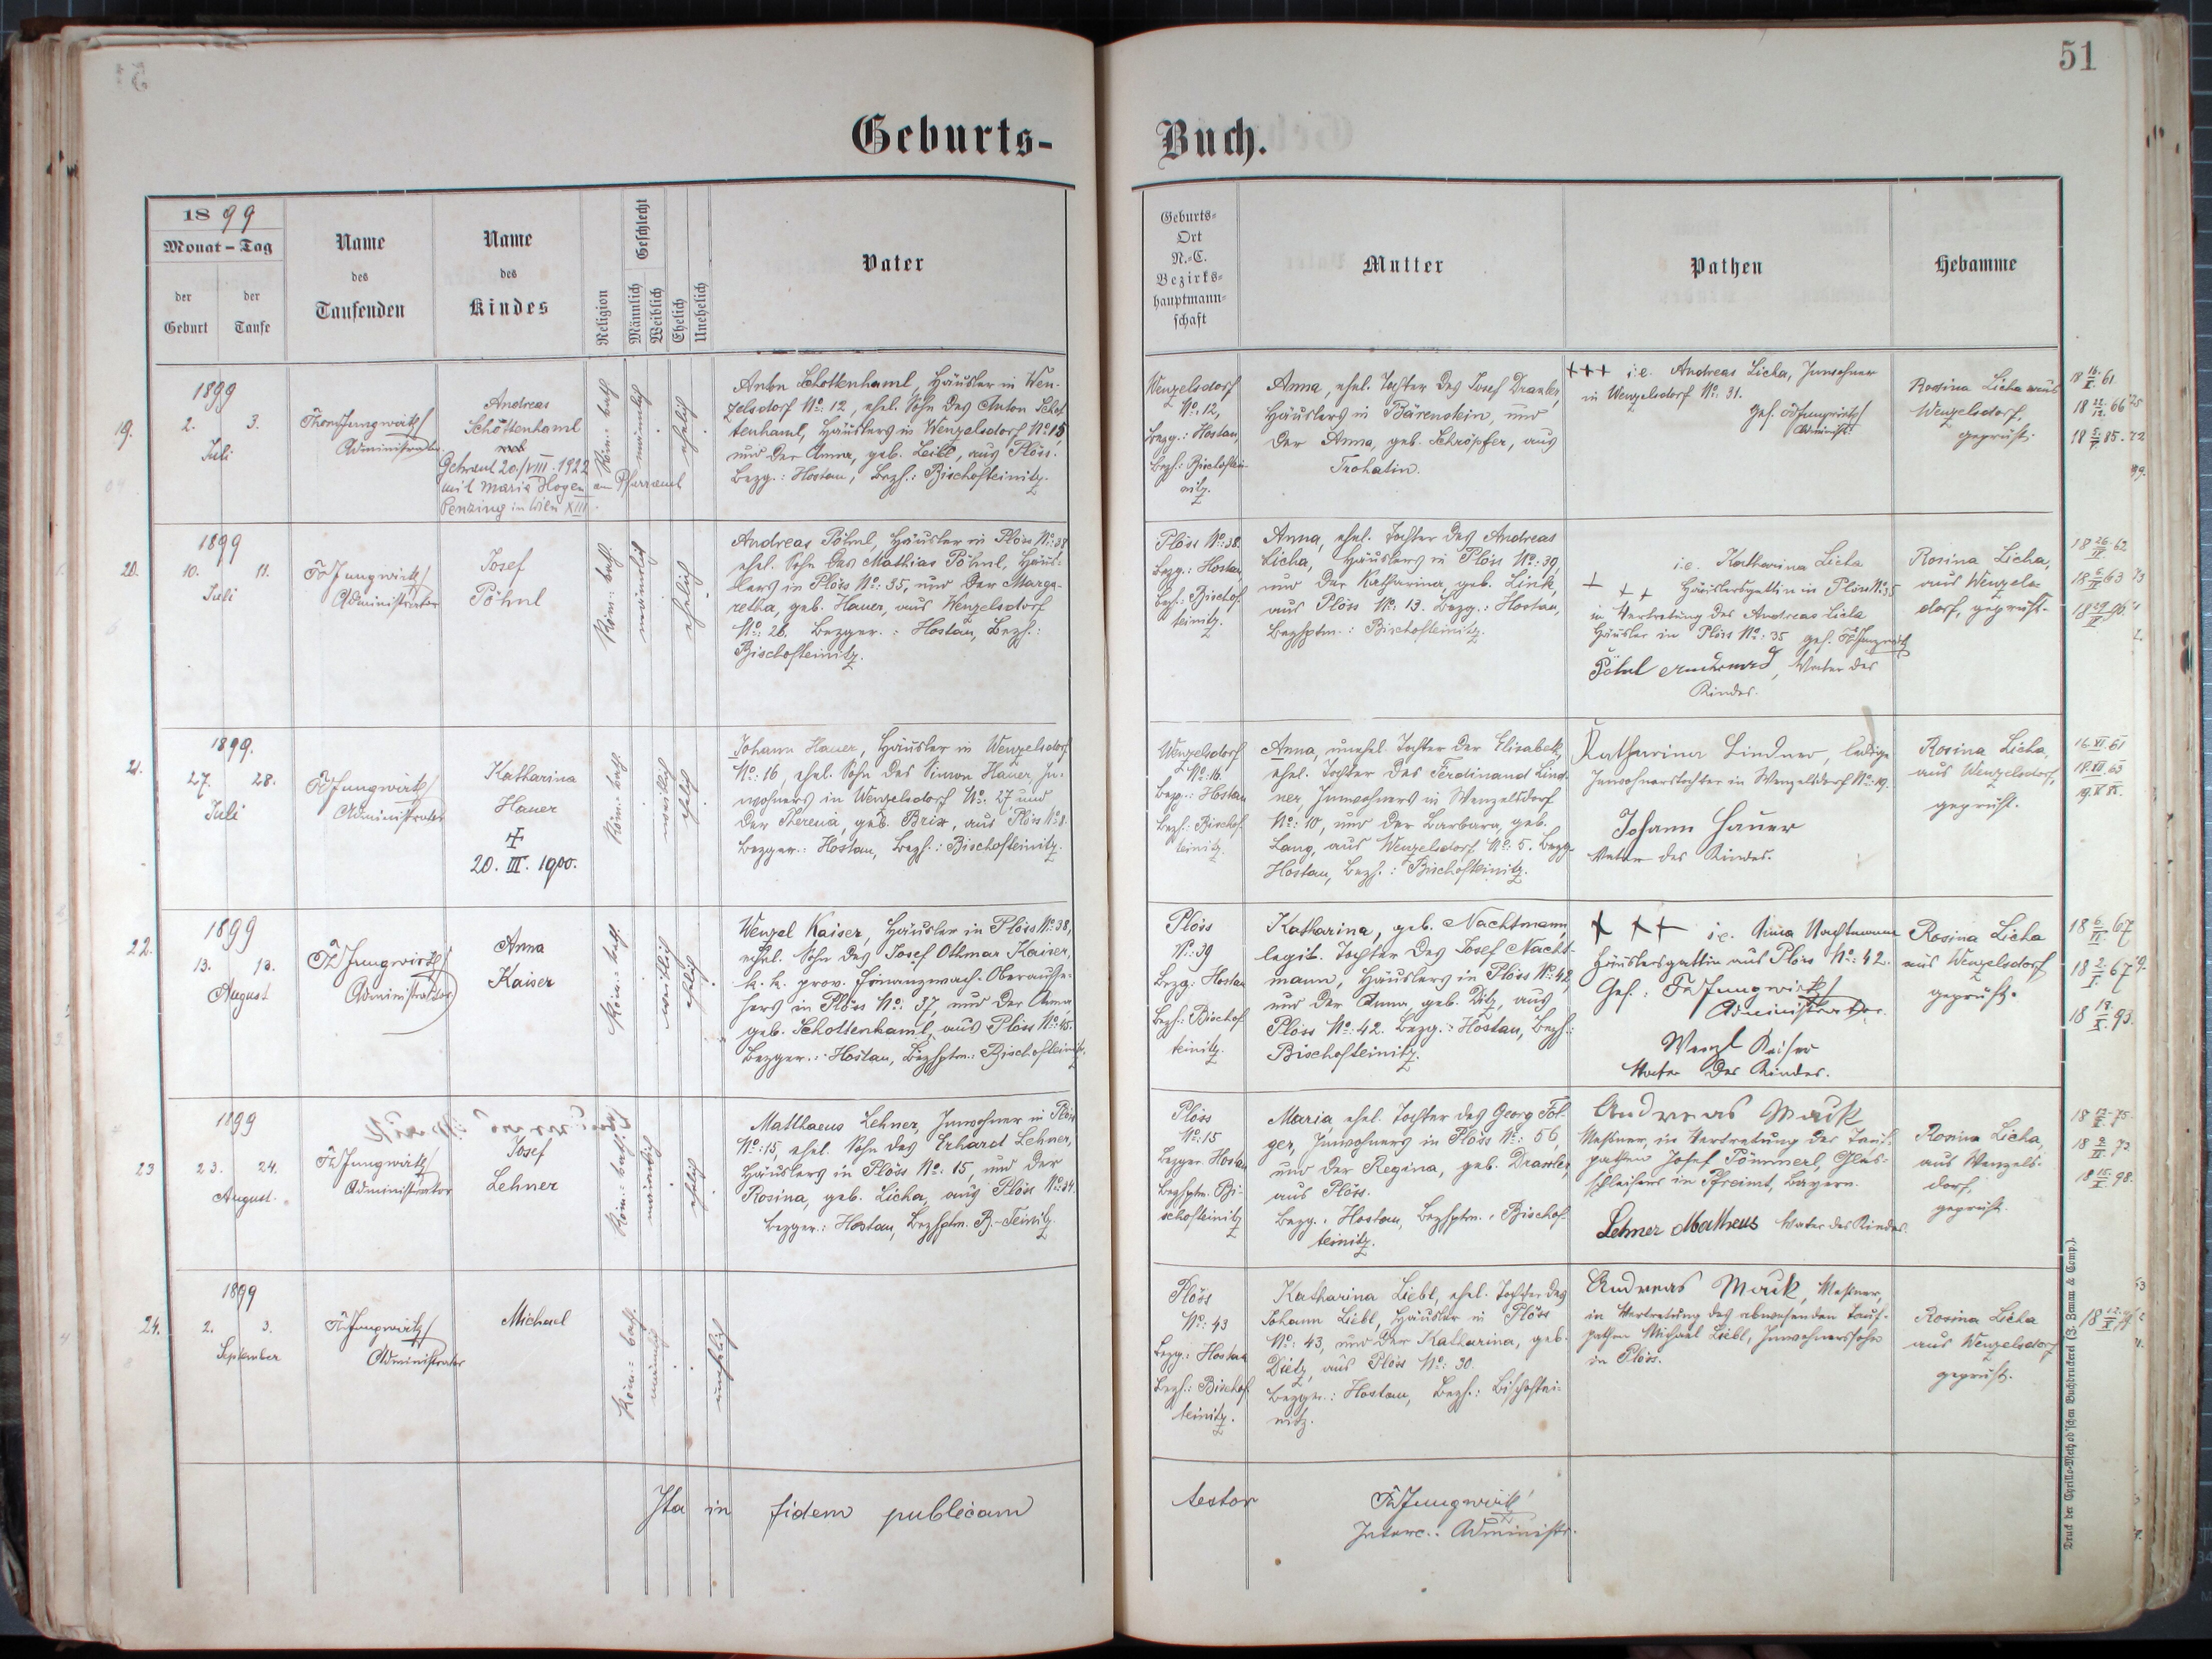 51
Geburts-
Buch.
1899
Monat - Tag
der
Geburt
der
Taufe
Name
des
Taufenden
Name
des
Kindes
Religion
Geschlecht
Männlich
Weiblich
Ehelich
Unehelich
Vater
Geburts-
Ort
N.-C.
Bezirks-
hauptmann-
schaft
Mutter
Pathen
Hebamme
19.
1899
2. 3.
Juli
Jungwirth
Administrator
Andreas
Schottenhaml
Getraut 20/VIII. 1922
mit Maria Hogen am Pfarramt
Penzing in Wien XIII.
Röm: kath.
männlich
ehelich
Anton Schottenhaml, Häusler in Wen-
zelsdorf No: 12, ehel. Sohn des Anton Schot-
tenhaml, Häuslers in Wenzelsdorf No: 15
und der Anna, geb. Leibl, aus Plöss.
Bezg.: Hostau, Bezh.: Bischofteinitz.
Wenzelsdorf
No: 12,
Bezg.: Hostau,
Bezh.: Bischoftei-
nitz.
Anna, ehel. Tochter des Josef Draxler,
Häuslers in Bärenstein, und
der Anna, geb. Schröpfer, aus
Trohatin.
+++ i.e. Andreas Licha, Inwohner
in Wenzelsdorf No: 31.
gef. Jungwirth
Administ.
Rosina Licha aus
Wenzelsdorf,
geprüft.
20.
1899
10. 11.
Juli
Jungwirth
Administrator
Josef
Pöhnl
Röm: kath.
männlich
ehelich
Andreas Pöhnl, Häusler in Plöss No: 38
ehel. Sohn des Mathias Pöhnl, Häus-
lers in Plöss No: 35, und der Marga-
retha, geb. Hauer, aus Wenzelsdorf
No: 26. Bezger.: Hostau, Bezh.:
Bischofteinitz.
Plöss No: 38.
Bezg.: Hostau
Bezh.: Bischof-
teinitz.
Anna, ehel. Tochter des Andreas
Licha, Häuslers in Plöss No: 39,
und der Katharina, geb. Link,
aus Plöss No: 13. Bezg.: Hostau,
Bezhptm.: Bischofteinitz.
i.e. Katharina Licha
+ + + Häuslersgattin in Plöss No: 35
in Vertretung des Andreas Licha
Häusler in Plöss No: 35 gef. Jungwirth
Pöhnl Andreas, Vater des
Kindes.
Rosina Licha,
aus Wenzels-
dorf, geprüft.
21.
1899.
27. 28.
Juli
Jungwirth
Administrator
Katharina
Hauer
+
20. III. 1900.
Röm: kath.
ehelich
Johann Hauer, Häusler in Wenzelsdorf
No: 16, ehel. Sohn des Simon Hauer, In-
wohners in Wenzelsdorf No: 27 und
der Theresia, geb. Brix, aus Plöss No: 8.
Bezger.: Hostau, Bezh.: Bischofteinitz.
Wenzelsdorf
No: 16.
Bezg.: Hostau
Bezh.: Bischof-
teinitz.
Anna, unehel. Tochter der Elisabeth,
ehel. Tochter des Ferdinand Lind-
ner, Inwohners in Wenzelsdorf
No: 10, und der Barbara, geb.
Lang, aus Wenzelsdorf No: 5. Bezg.
Hostau, Bezh.: Bischofteinitz.
Katharina Lindner, ledige
Inwohnerstochter in Wenzelsdorf No: 19.
Johann Hauer
Vater des Kindes.
Rosina Licha,
aus Wenzelsdorf,
geprüft.
22.
1899
13. 13.
August
Jungwirth
Administrator
Anna
Kaiser
Röm: kath.
weiblich
ehelich
Wenzel Kaiser, Häusler in Plöss No: 38,
ehel. Sohn des Josef Ottmar Kaiser,
k. k. prov. Finanzwach-Oberaufse-
hers in Plöss No: 37, und der Anna,
geb. Schottenhaml, aus Plöss No: 45.
Bezger.: Hostau, Bezhptm.: Bischofteinitz.
Plöss
No: 39
Bezg: Hostau
Bezh: Bischof-
teinitz.
Katharina, geb. Nachtmann,
legit. Tochter des Josef Nacht-
mann, Häuslers in Plöss No: 42,
und der Anna, geb. Ditz, aus
Plöss No: 42. Bezg.: Hostau, Bezh.:
Bischofteinitz.
+ + + i.e. Anna Nachtmann
Häuslersgattin aus Plöss No: 42.
Gef.: Jungwirth
Administrator.
Wenzl Kaiser
Vater des Kindes.
Rosina Licha
aus Wenzelsdorf
geprüft.
23
1899
23. 24.
August.
Jungwirth
Administrator
Josef
Lehner
Röm: kath.
männlich
ehelich
Matthaeus Lehner, Inwohner in Plöss
No: 15, ehel. Sohn des Erhard Lehner,
Häuslers in Plöss No: 15, und der
Rosina, geb. Licha, aus Plöss No: 34.
Bezger.: Hostau, Bezhptm. B.-Teinitz.
Plöss
No: 15
Bezger. Hostau
Bezhptm. Bi-
schofteinitz
Maria, ehel. Tochter des Georg Fol-
ger, Inwohners in Plöss No: 56,
und der Regina, geb. Draxler,
aus Plöss.
Bezg.: Hostau, Bezhptm.: Bischof-
teinitz.
Andreas Mauk
Meßner, in Vertretung des Tauf-
pathen Josef Pömmerl, Glas-
schleifers in Pfreimt, Bayern.
Lehner Matheus Vater des Kindes.
Rosina Licha,
aus Wenzels-
dorf,
geprüft.
24.
1899
2. 3.
September
Jungwirth
Administrator
Michael
Röm: kath.
männlich
unehelich
Plöss
No: 43
Bezg.: Hostau
Bezh.: Bischof-
teinitz.
Katharina Liebl, ehel. Tochter des
Johann Liebl, Häusler in Plöss
No: 43, und der Katharina, geb.
Dietz, aus Plöss No: 30.
Bezger.: Hostau, Bezh.: Bischoftei-
nitz.
Andreas Mauk, Meßner,
in Vertretung des abwesenden Tauf-
pathen Michael Liebl, Inwohnerssohn
in Plöss.
Rosina Licha
aus Wenzelsdorf
geprüft.
Ita in fidem publicam
testor
Jungwirth
Interc. Administr.
Druck der Cyrillo-Method'schen Buchdruckerei (J. Zeman & Comp.).